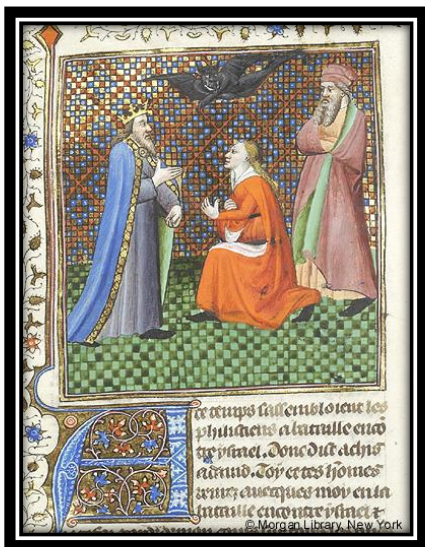 ce temps sassembloient les
philistiens a bataille enco
tre ysrael. Donc dist achis
a dauid. Toy et tes homes
venez auecques moy en la
bataille encontre ysrael et
© Morgan Library, New York